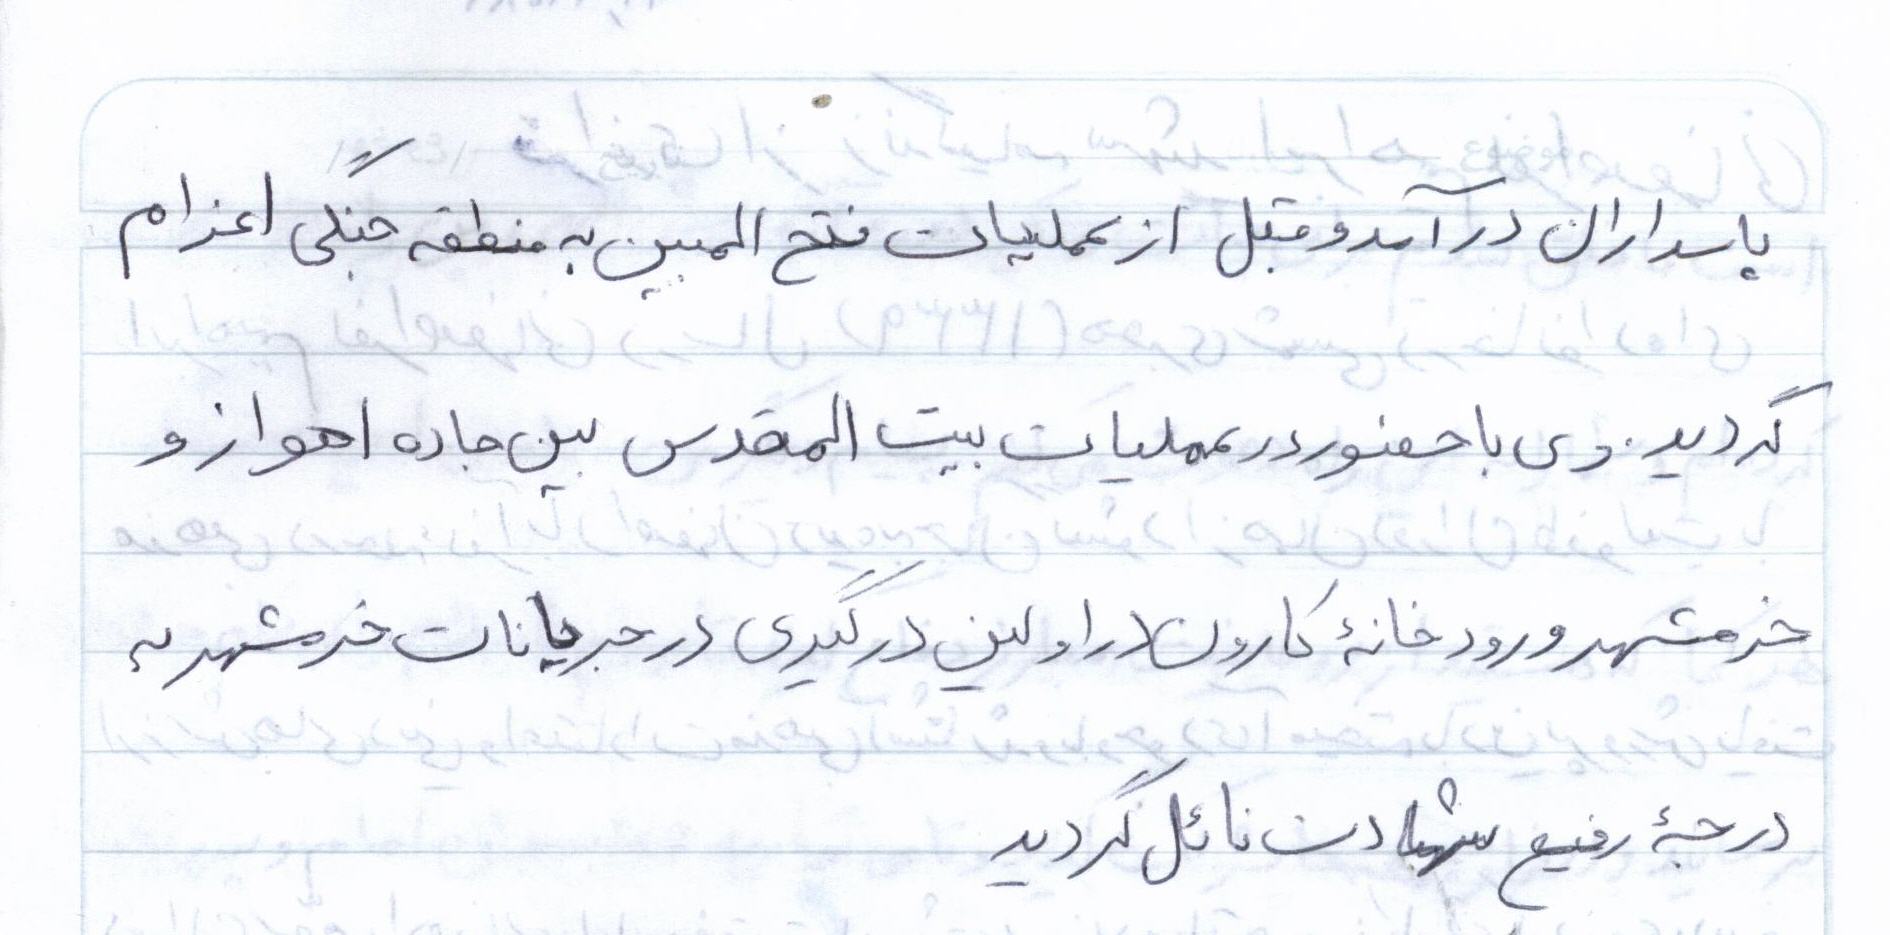 پاسداران در آمد و قبل از عملیات فتح المبین به منطقه جنگی اعزام
گردید. وی با حضور در عملیات بیت المقدس بین جاده اهواز و
خرمشهر و رودخانهٔ کارون در اولین درگیری در جریانات خرمشهر به
درجهٔ رفیع شهادت نائل گردید